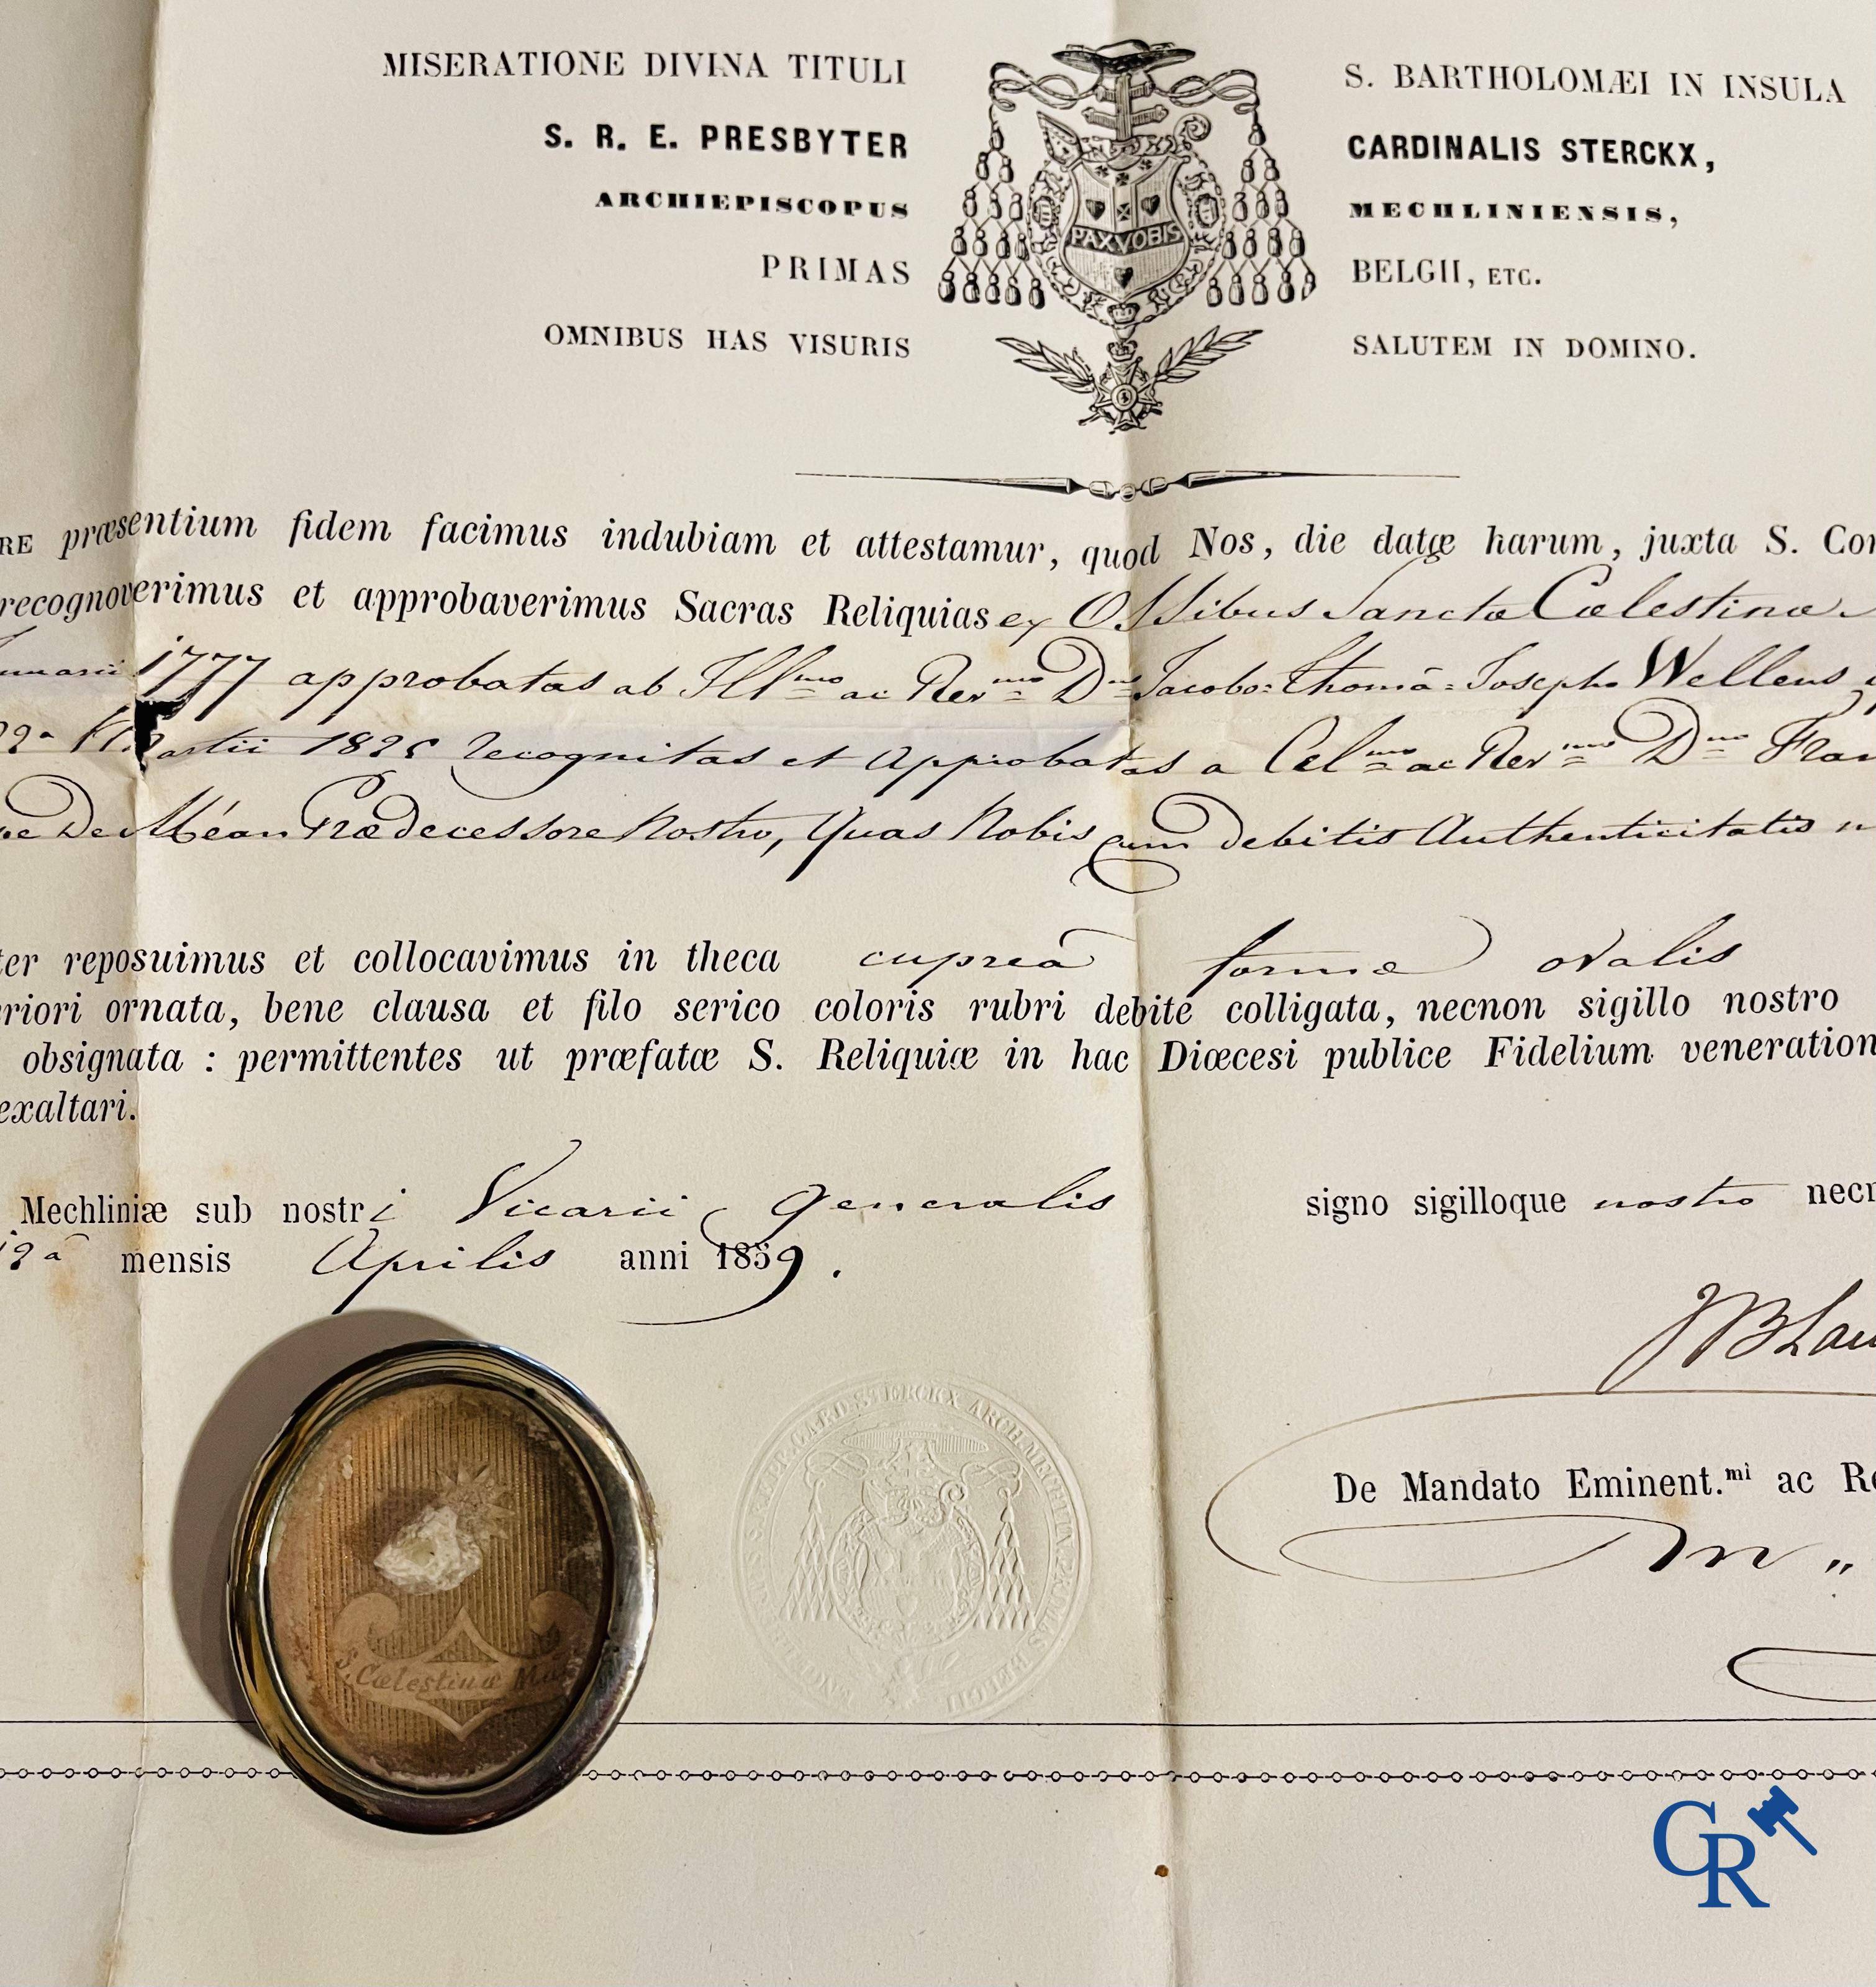 MISERATIONE DIVINA TITULI S. BARTHOLOMÆI IN INSULA
S. R. E. PRESBYTER CARDINALIS STERCKX,
ARCHIEPISCOPUS MECHLINIENSIS,
PRIMAS BELGII, ETC.
OMNIBUS HAS VISURIS SALUTEM IN DOMINO.
PAX VOBIS
RE præsentium fidem facimus indubiam et attestamur, quod Nos, die datæ harum, juxta S. Con
recognoverimus et approbaverimus Sacras Reliquias ex Ossibus Sanctæ Cœlestinæ
1777 approbatas ab Ill.mo ac Rev.mo D.no Jacobo=Thomâ=Josepho Wellens
22â Martii 1825 recognitas et Approbatas a Cel.mo ac Rev.mo D.no Fran
De Méan Prædecessore Nostro, Quas Nobis cum Debitis Authenticitatis
ter reposuimus et collocavimus in theca cupreâ formæ ovalis
riori ornata, bene clausa et filo serico coloris rubri debité colligata, necnon sigillo nostro
obsignata : permittentes ut præfatæ S. Reliquiæ in hac Diœcesi publice Fidelium veneration
exaltari.
Mechliniæ sub nostri Vicarii Generalis signo sigilloque nostro necn
mensis Aprilis anni 1859.
JB Lau
De Mandato Eminent.mi ac Re
CARD. STERCKX ARCH. MECHLIN. PRIMAS BELGII
S. Cœlestinæ M
CR